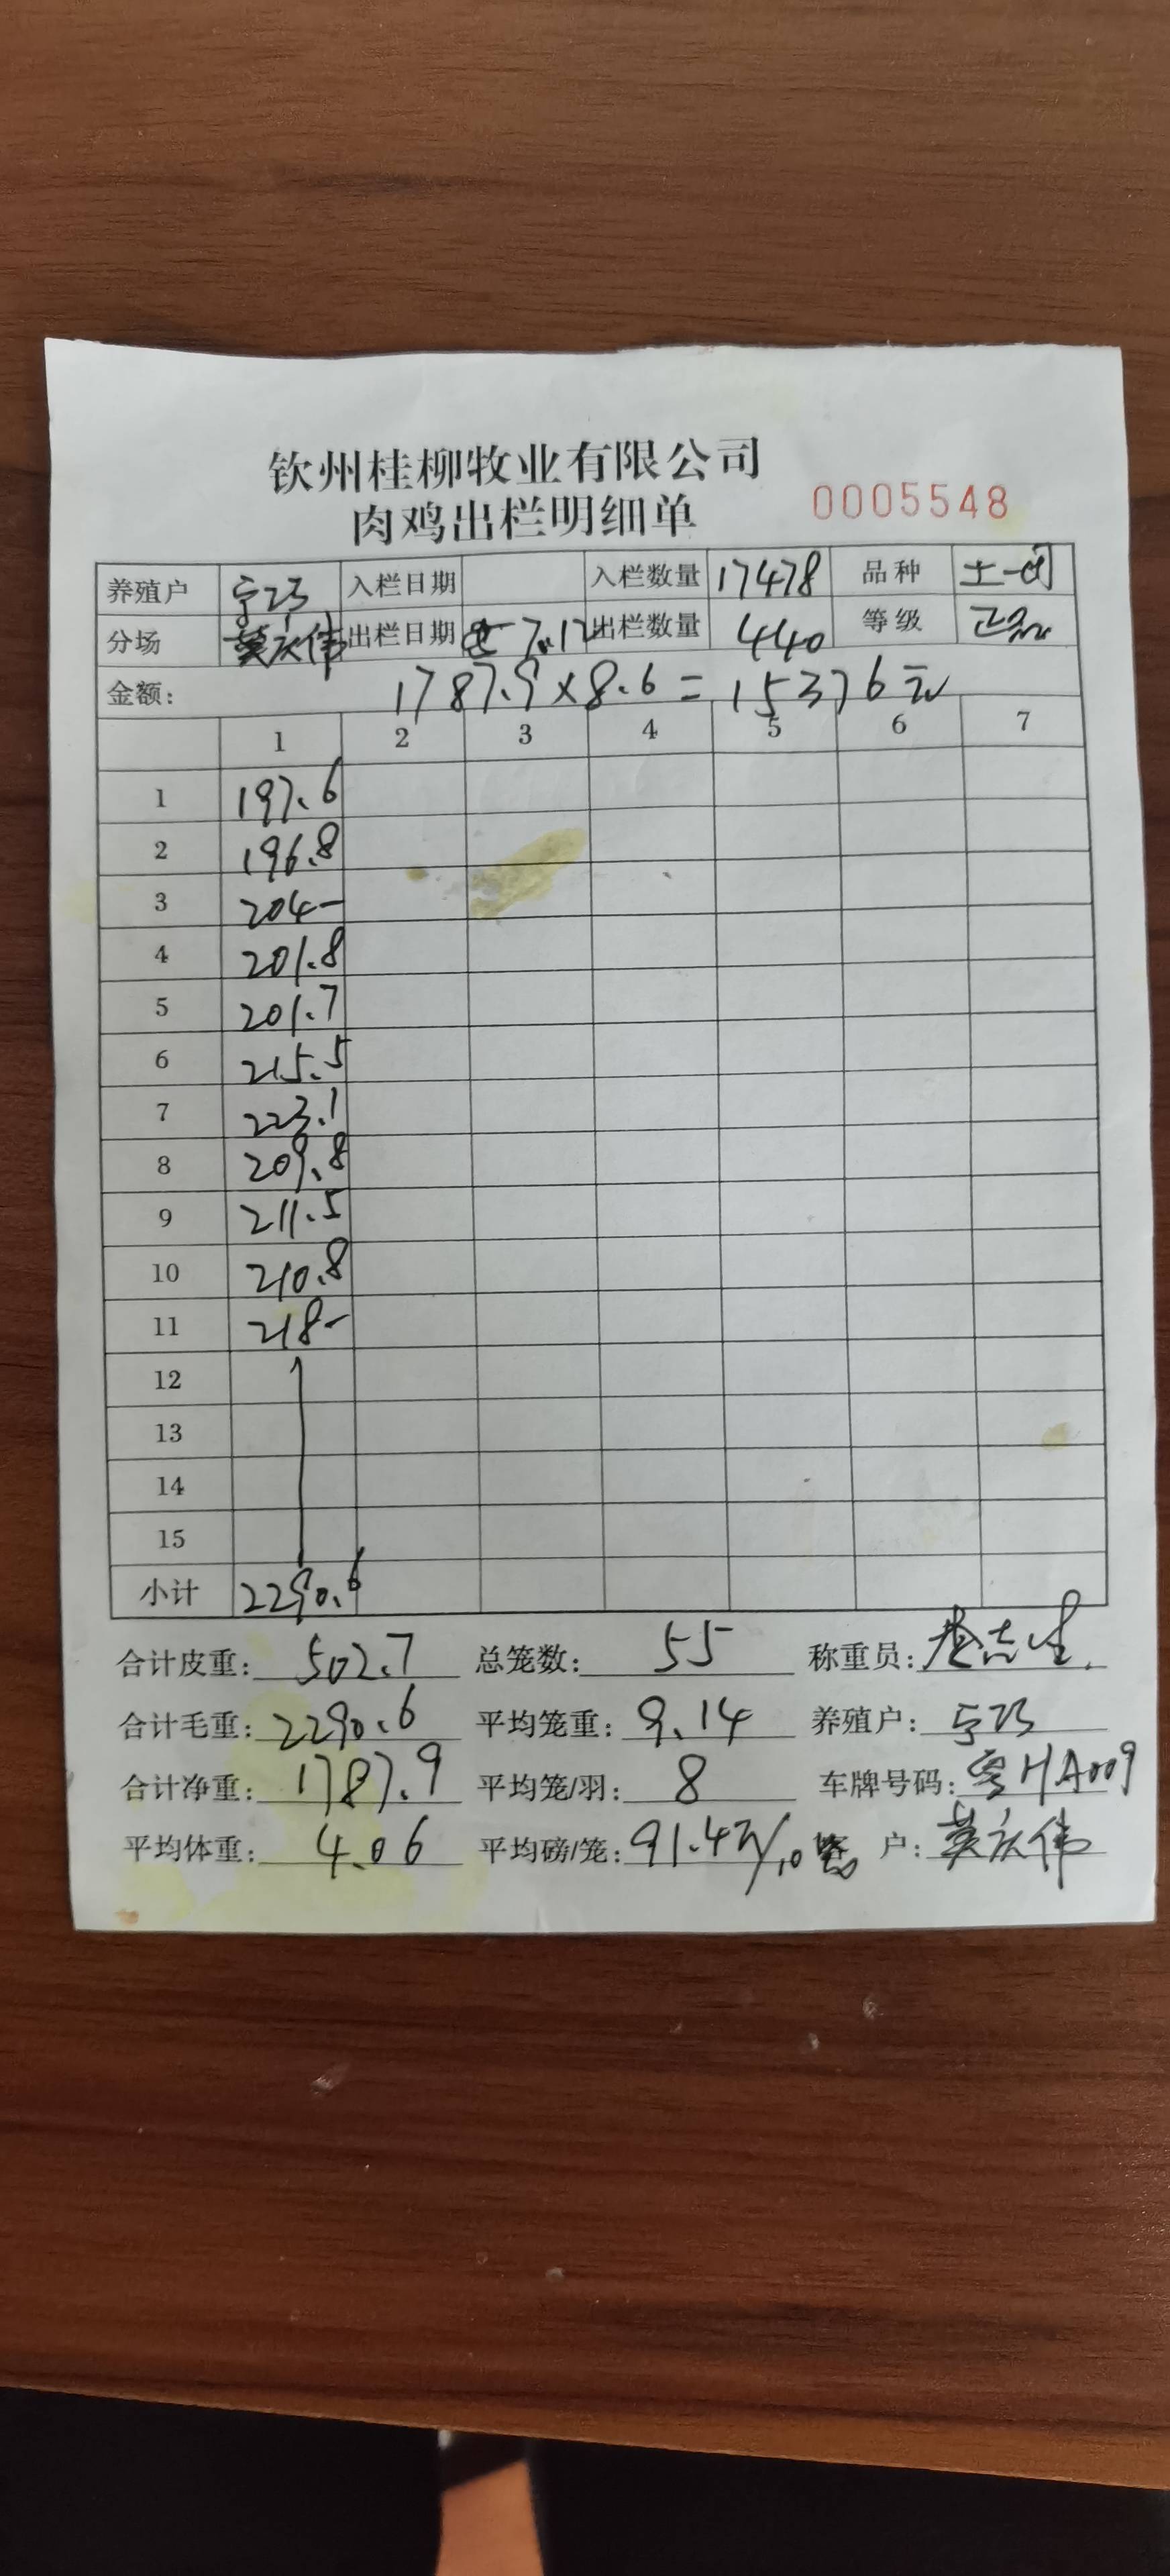 钦州桂柳牧业有限公司
肉鸡出栏明细单 0005548
养殖户 入栏日期 入栏数量 17478 品种 土一
分场 莫庆伟 出栏日期 7.12 出栏数量 440 等级 正
金额: 1787.9×8.6=15376元
1 2 3 4 5 6 7
1 197.6
2 196.8
3 204-
4 201.8
5 201.7
6 215.5
7 223.1
8 209.8
9 211.5
10 210.8
11 218-
12
13
14
15
小计 2290.6
合计皮重: 502.7 总笼数: 55 称重员:
合计毛重: 2290.6 平均笼重: 9.14 养殖户:
合计净重: 1787.9 平均笼/羽: 8 车牌号码: 粤HA009
平均体重: 4.06 平均磅/笼: 91.4 户: 莫庆伟